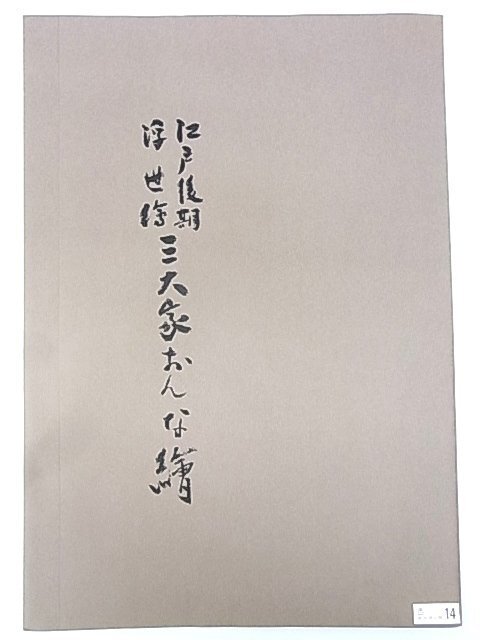 江戸後期
浮世繪
三大家おんな繪
14